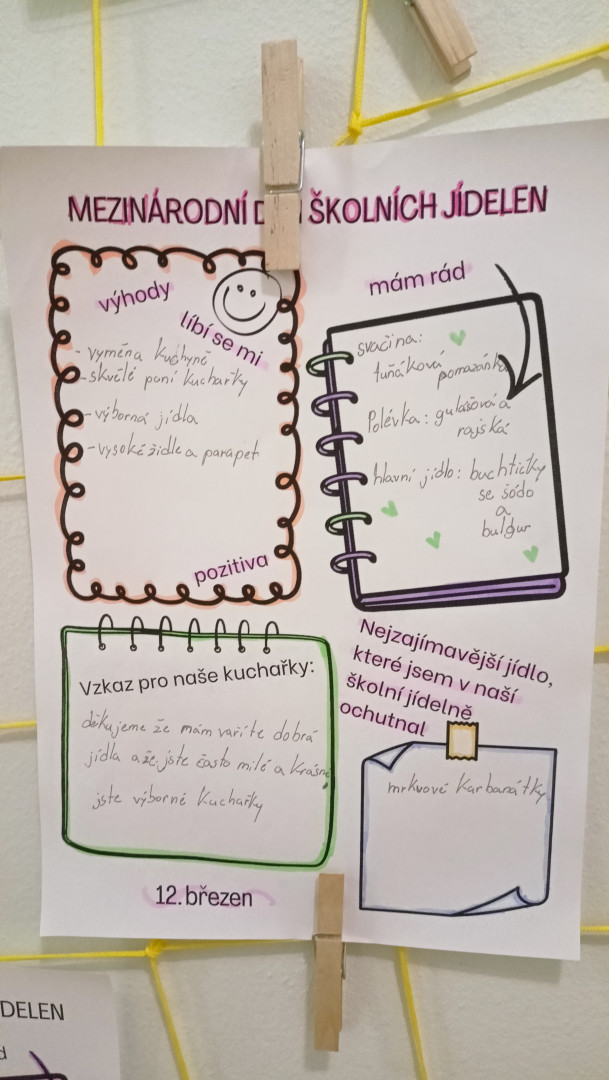 MEZINÁRODNÍ D ŠKOLNÍCH JÍDELEN
výhody
líbí se mi
- vyměna kuchyně
- skvělé paní kuchařky
- výborná jídla
- vysoké židle a parapet
pozitiva
mám rád
svačina:
tuňáková pomazánka
Polévka: gulášová a
rajská
hlavní jídlo: buchtičky
se šódo
a
bulgur
Vzkaz pro naše kuchařky:
děkujeme že mám vaříte dobrá
jídla a že jste často milé a krásné,
jste výborné kuchařky
Nejzajímavější jídlo,
které jsem v naší
školní jídelně
ochutnal
mrkvové karbanátky
12. březen
DELEN